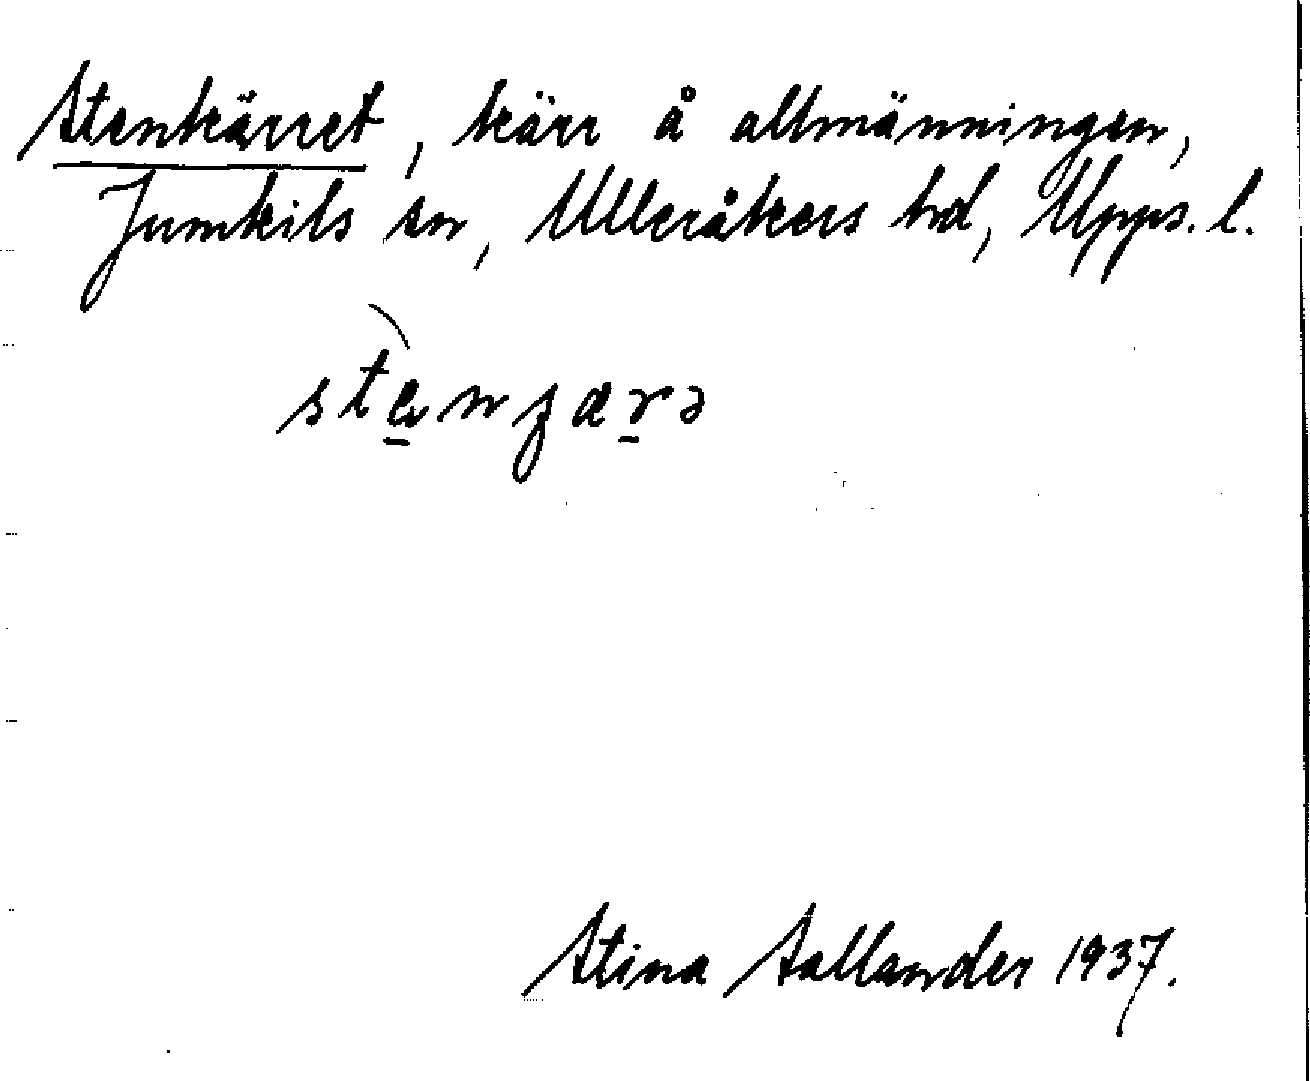 Stenkärret, kärr å allmänningen,
Jumkils sn, Ulleråkers hd, Upps. l.
Stina Sallander 1937.